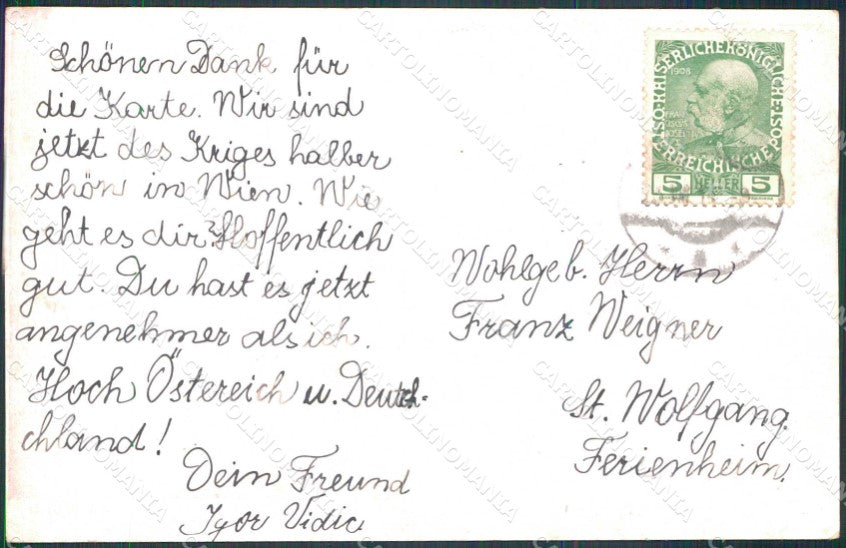 Schönen Dank für
die Karte. Wir sind
jetzt des Kriges halber
schön in Wien. Wie
geht es dir? Hoffentlich
gut. Du hast es jetzt
angenehmer als ich.
Hoch Östereich u. Deutch-
chland!
Dein Freund
Igor Vidic
K.K. KAISERLICHEKÖNIGLICHE
1908
FRANZ
JOSEF I
ÖSTERREICHISCHE POST
5 HELLER 5
Wohlgeb. Herrn
Franz Weigner
St. Wolfgang.
Ferienheim.
CARTOLINOMANIA